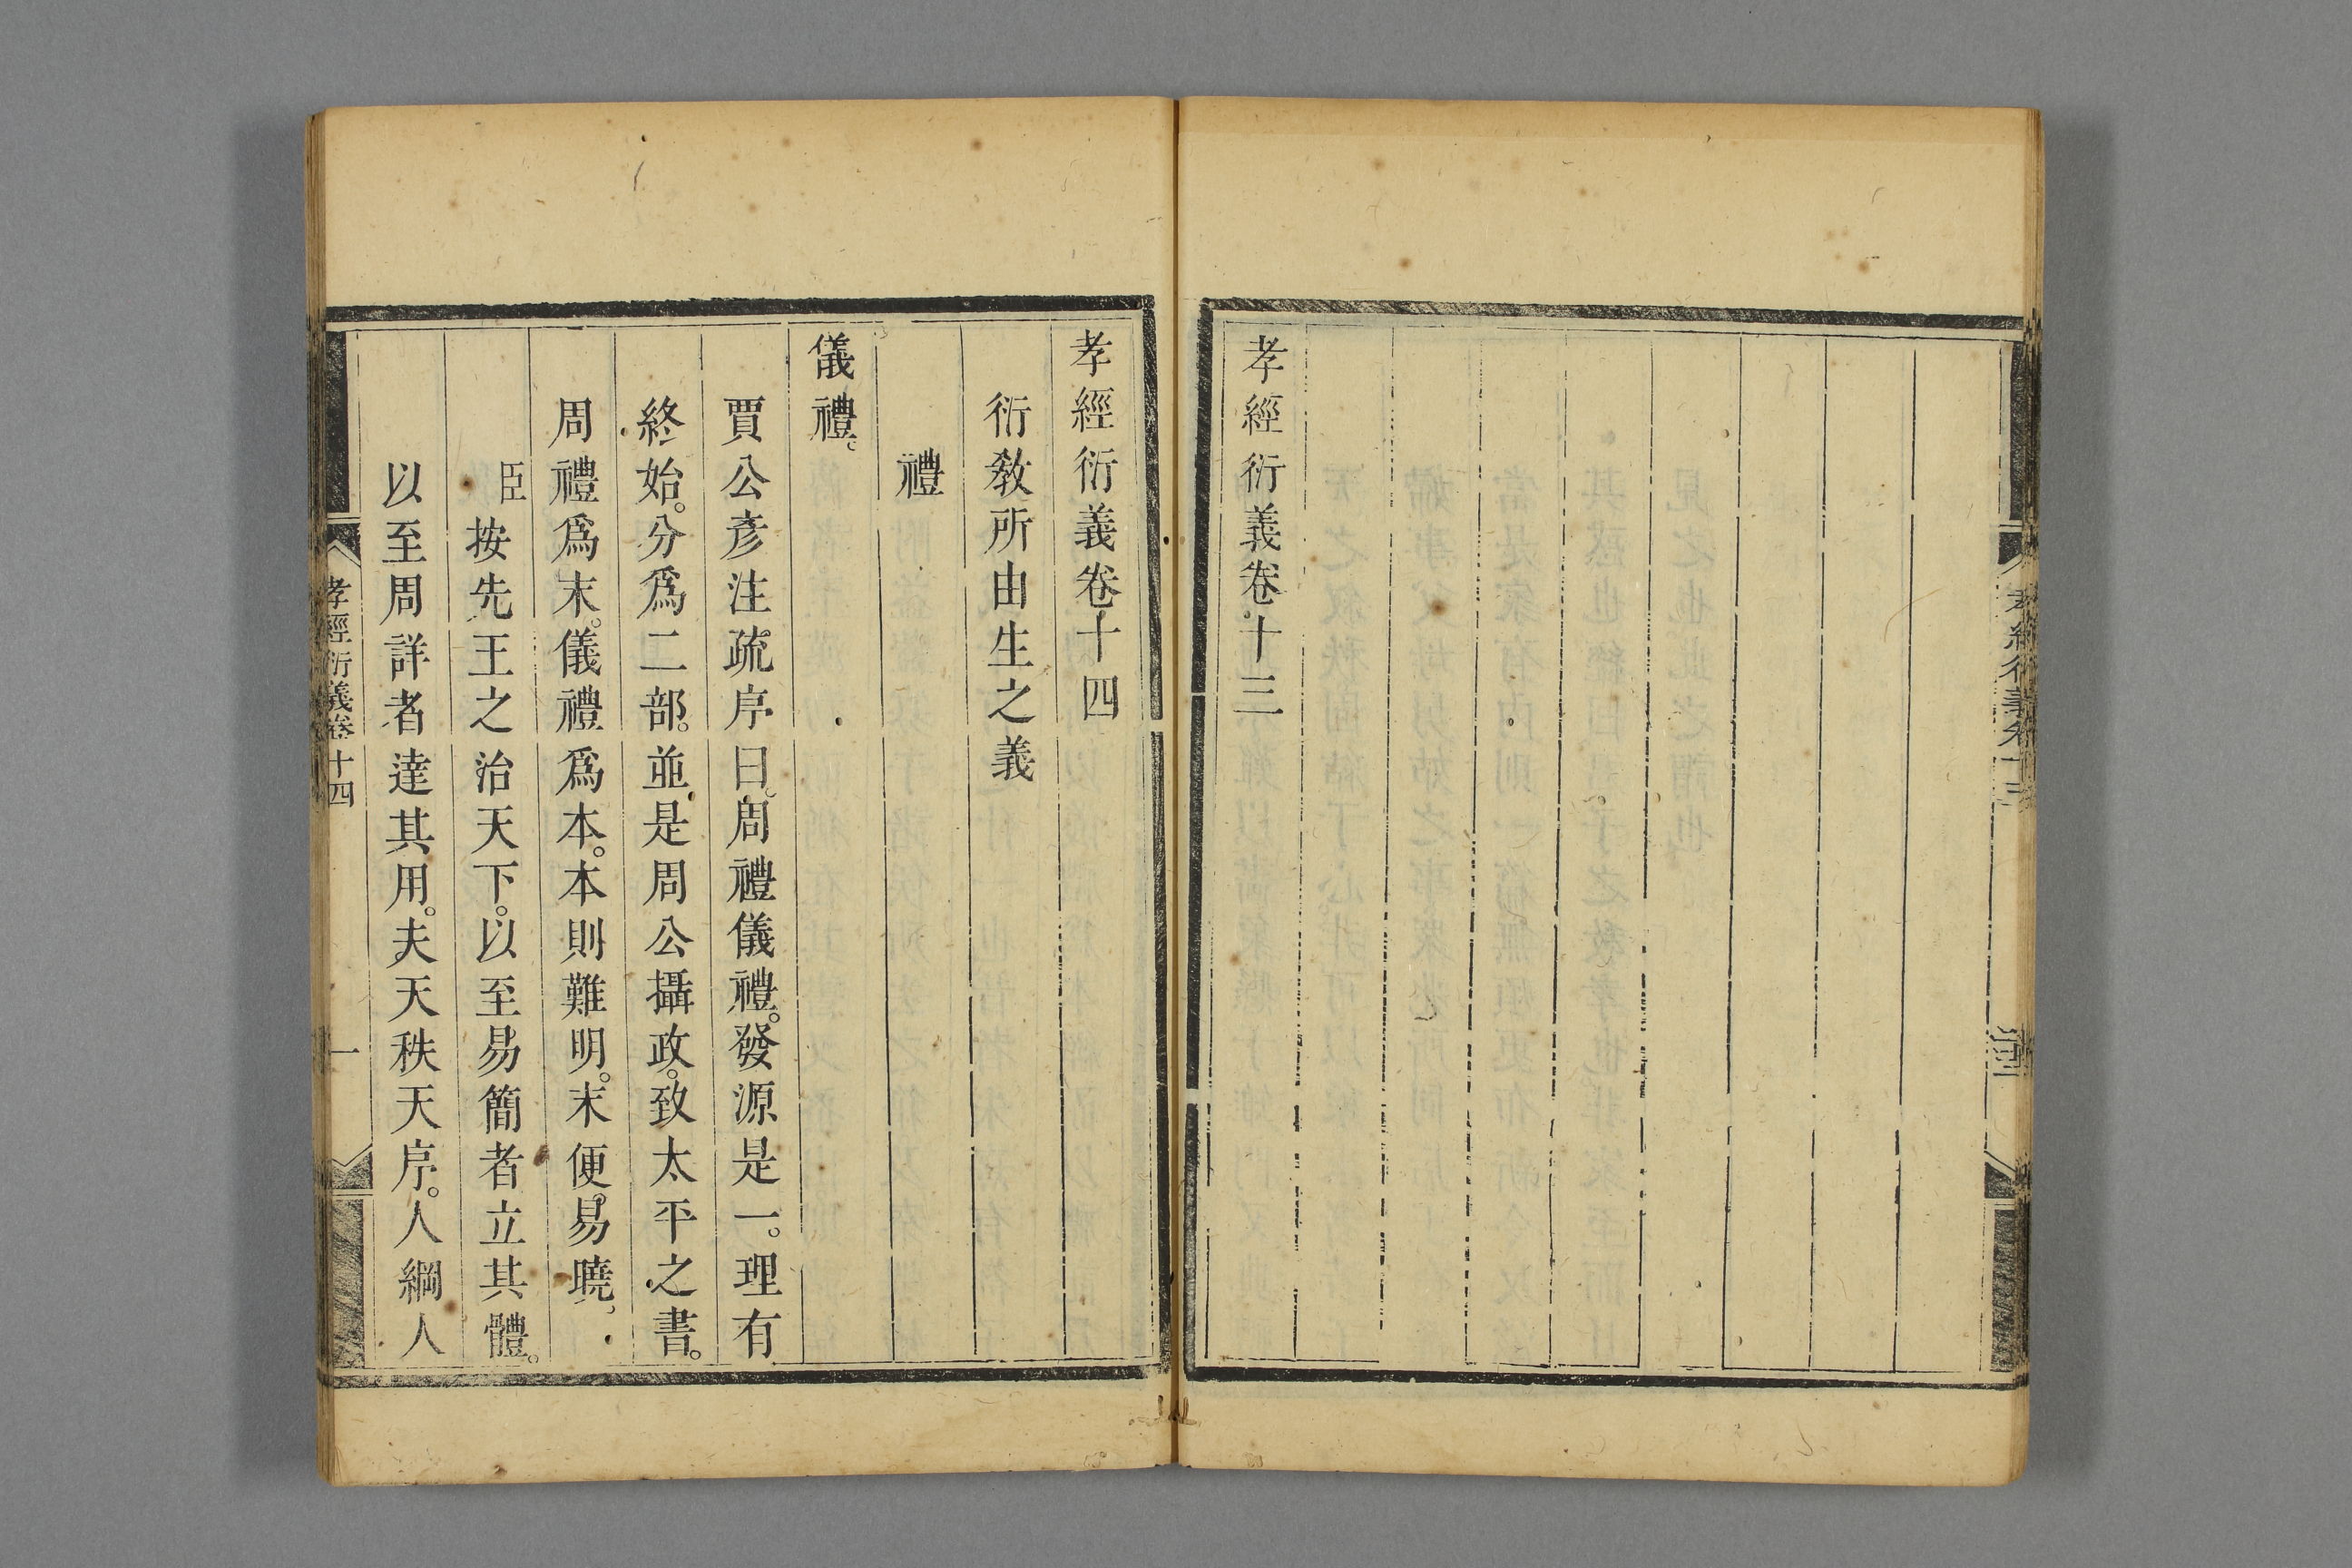 孝經衍義卷十三
孝經衍義卷十四
衍敎所由生之義
禮
儀禮。
賈公彥注疏序曰。周禮儀禮。發源是一。理有
終始。分爲二部。並是周公攝政。致太平之書。
周禮爲末。儀禮爲本。本則難明。末便易曉。
臣按先王之治天下。以至易簡者立其體。
以至周詳者達其用。夫天秩天序。人綱人
孝經衍義卷十四
一